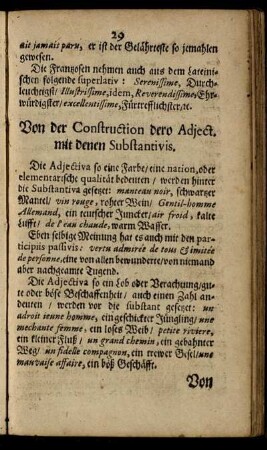 29
ait jamais paru, er ist der Gelährteste so jemahlen
gewesen.
Die Frantzosen nehmen auch aus dem Lateini-
schen folgende superlativ: Serenissime, Durch-
leuchtigst/ Illustrissime, idem, Reverendissime, Ehr-
würdigster/ excellentissime, Fürtrefflichster, &c.
Von der Construction dero Adject.
mit denen Substantivis.
Die Adjectiva so eine Farbe/ eine nation, oder
elementarische qualität bedeuten / werden hinter
die Substantiva gesetzt: manteau noir, schwartzer
Mantel/ vin rouge, rohter Wein/ Gentil-homme
Allemand, ein teutscher Juncker/ air froid, kalte
Lufft/ de l'eau chaude, warm Wasser.
Eben selbige Meinung hat es auch mit den par-
ticipiis passivis: vertu admirée de tous & imitée
de personne, eine von allen bewunderte/ von niemand
aber nachgeamte Tugend.
Die Adjectiva so ein Lob oder Verachung/ gu-
te oder böse Beschaffenheit / auch einen Zahl an-
deuten / werden vor die substant gesetzt: un
adroit jeune homme, ein geschickter Jüngling/ une
mechante femme, ein loses Weib / petite riviere,
ein kleiner Fluß / un grand chemin, ein gebahnter
Weg/ un fidelle compagnon, ein trewer Gesel/ une
mauvaise affaire, ein böß Geschäfft.
Von